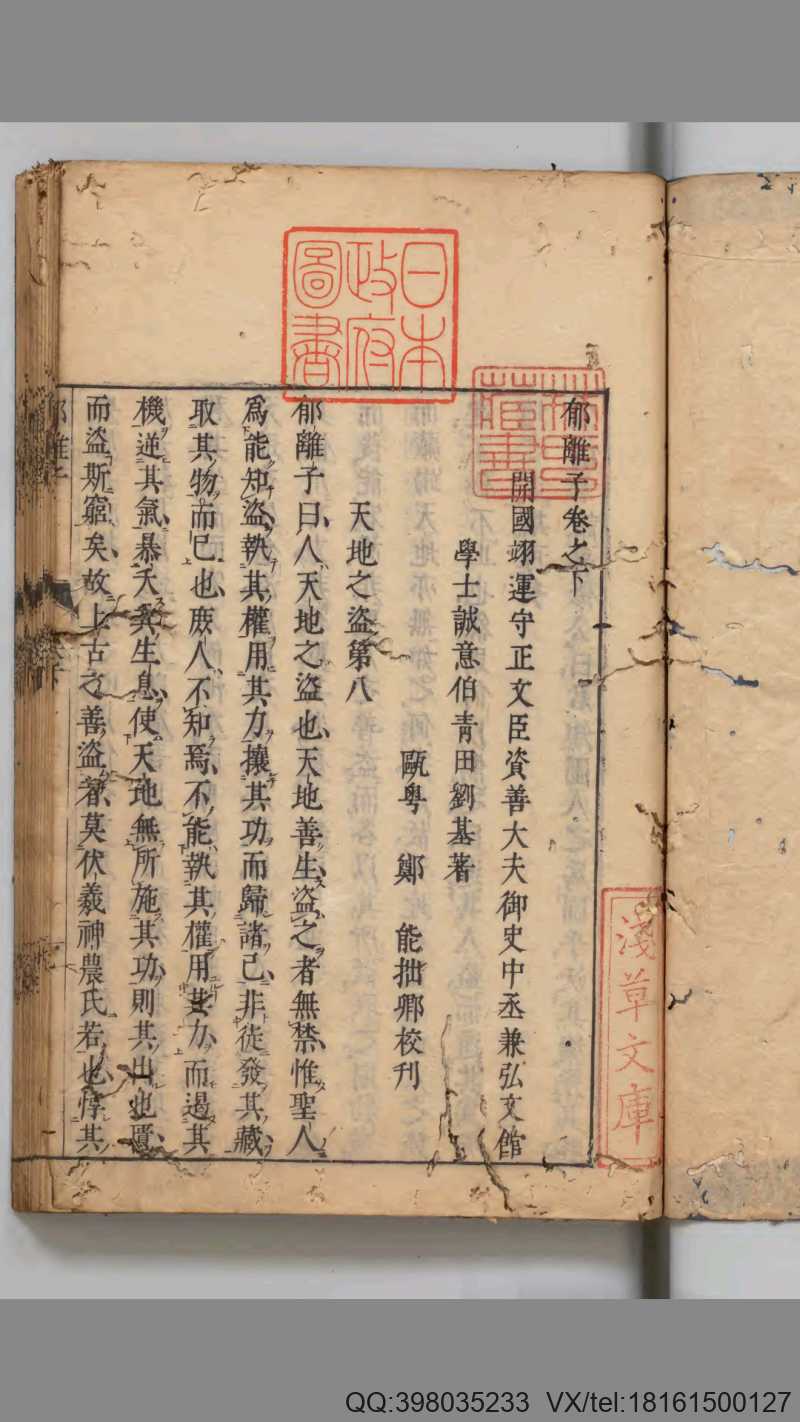 郁離子卷之下
開國翊運守正文臣資善大夫御史中丞兼弘文館
學士誠意伯青田劉基著
甌粤 鄭 能拙卿校刊
天地之盜第八
郁離子曰人天地之盜也天地善生盜之者無禁惟聖人
爲能知盜執其權用其力攘其功而歸諸己非徒發其藏
取其物而已也庶人不知焉不能執其權用其力而遏其
機逆其氣暴夭其生息使天地無所施其功則其出也匱
而盜斯窮矣故上古之善盜者莫伏羲神農氏若也惇其
郁離子
日本
政府
圖書
淺草文庫
QQ:398035233 VX/tel:18161500127